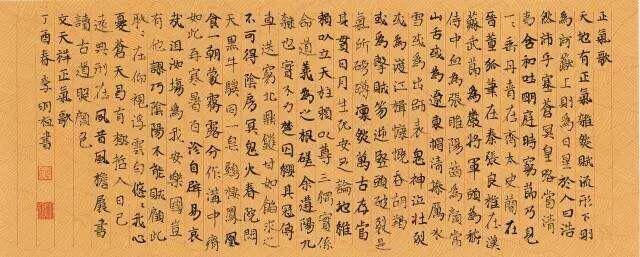 正氣歌
天地有正氣雜然賦流形下則
為河嶽上則為日星於人曰浩
然沛乎塞蒼冥皇路當清
夷含和吐明庭時窮節乃見
一一垂丹青在齊太史簡在
晉董狐筆在秦張良椎在漢
蘇武節為嚴將軍頭為嵇
侍中血為張睢陽齒為顏常
山舌或為遼東帽清操厲冰
雪或為出師表鬼神泣壯烈
或為渡江楫慷慨吞胡羯
或為擊賊笏逆豎頭破裂是
氣所磅礴凜然萬古存當
其貫日月生死安足論地維
賴以立天柱賴以尊三綱實係
命道義為之根嗟余遘陽九
隸也實不力楚囚纓其冠傳
車送窮北鼎鑊甘如飴求之
不可得陰房冥鬼火春院閟
天黑牛驥同一皂雞棲鳳凰
食一朝蒙霧露分作溝中瘠
如此再寒暑百沴自辟易哀
哉沮洳場為我安樂國豈
有他謬巧陰陽不能賊顧此
耿耿在仰視浮雲白悠悠我心
憂蒼天曷有極哲人日已
遠典刑在夙昔風檐展書
讀古道照顏色
文天祥正氣歌
丁酉春李明 書